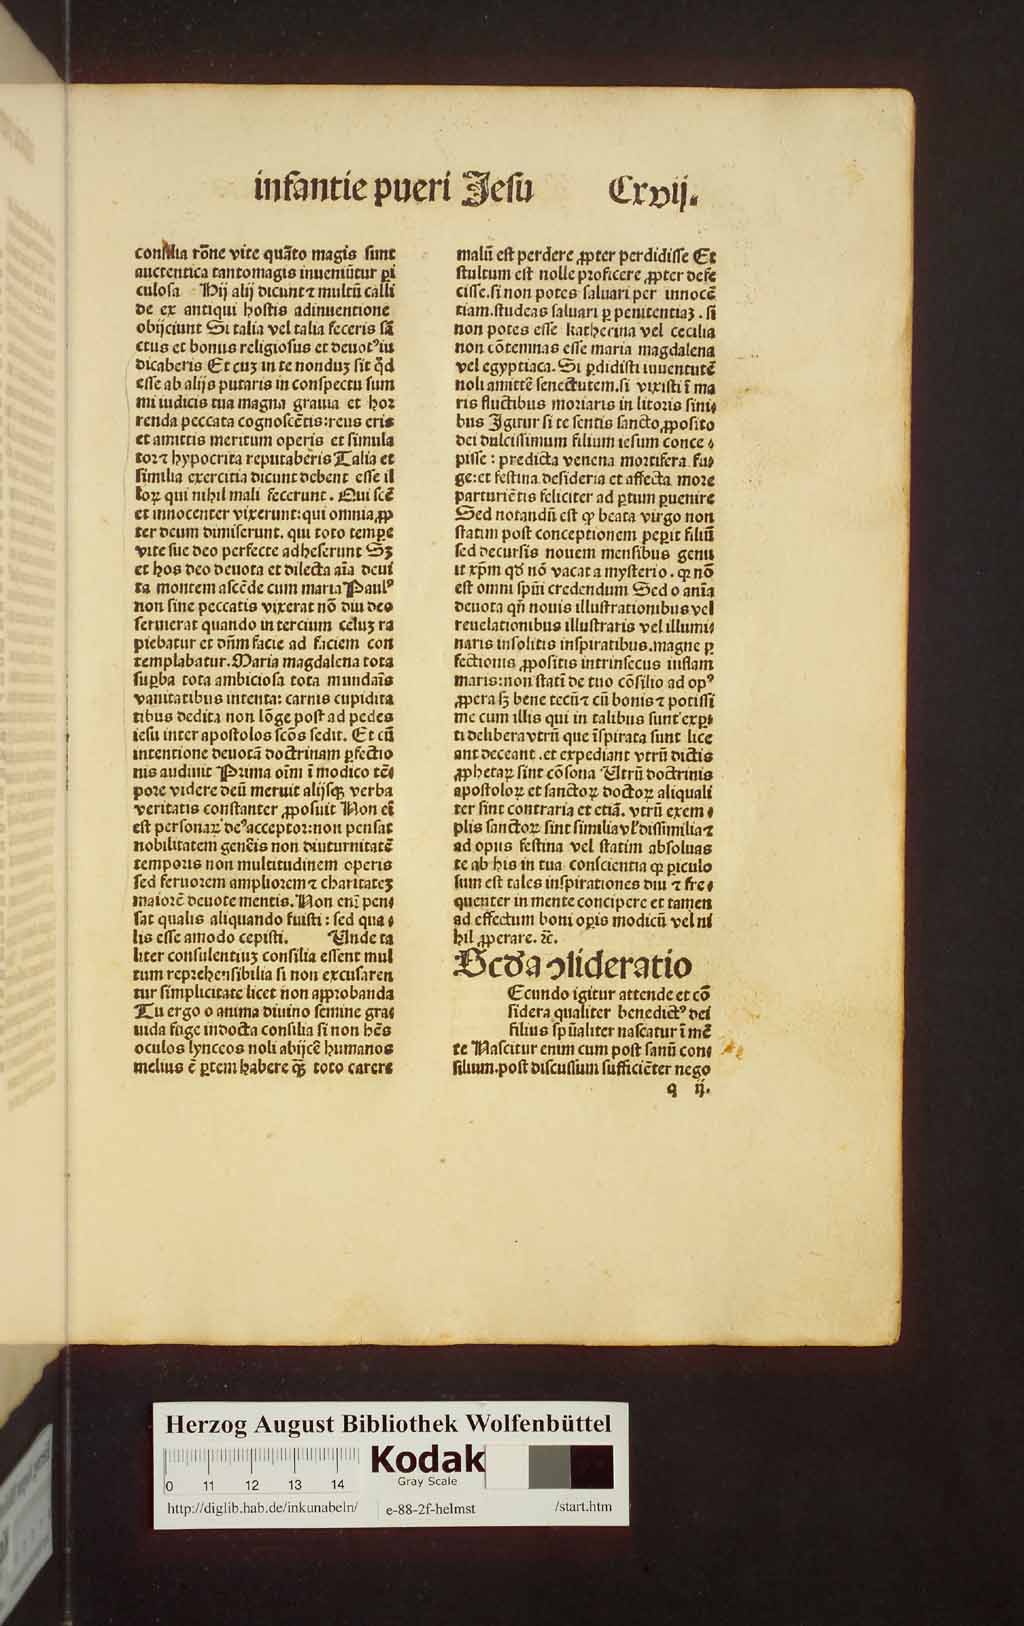 infantie pueri Jesu Cxvij.
consilia rõne vite quãto magis sunt
auctentica tantomagis inueniũtur ꝑi
culosa Hij alij dicunt ⁊ multũ calli
de ex antiqui hostis adinuentione
obijciunt Si talia vel talia feceris sã
ctus et bonus religiosus et deuotꝰ iu
dicaberis Et cuʒ in te nonduʒ sit qd̾
esse ab alijs putaris in conspectu sum
mi iudicis tua magna grauia et hor
renda peccata cognoscẽtis: reus eris
et amittis meritum operis et simula
tor ⁊ hypocrita reputaberis Talia et
similia exercitia dicunt debent esse il
loꝝ qui nihil mali fecerunt. Qui scẽ
et innocenter vixerunt: qui omnia ꝓp
ter deum dimiserunt. qui toto temꝑe
vite sue deo perfecte adheserunt Sʒ
et hos deo deuota et dilecta aĩa deui
ta montem ascẽde cum maria Paulꝰ
non sine peccatis vixerat nõ diu deo
seruierat quando in tercium celuʒ ra
piebatur et dñm facie ad faciem con
templabatur. Maria magdalena tota
suꝑba tota ambiciosa tota mundaĩs
vanitatibus intenta: carnis cupidita
tibus dedita non lõge post ad pedes
iesu inter apostolos scõs sedit. Et cũ
intentione deuotã doctrinam ꝑfectio
nis audiuit Prima oĩm ĩ modico tẽ⸗
pore videre deũ meruit alijsqʒ verba
veritatis constanter ꝓposuit Non eĩ
est personaꝝ deꝰ acceptor: non pensat
nobilitatem geneĩs non diuturnitatẽ
temporis non multitudinem operis
sed feruorem ampliorem ⁊ charitateʒ
maiorẽ deuote mentis. Non eni pen⸗
sat qualis aliquando fuisti: sed qua⸗
lis esse amodo cepisti. Unde ta
liter consulentiuʒ consilia essent mul
tum reprehensibilia si non excusaren
tur simplicitate licet non approbanda
Tu ergo o anima diuino semine gra⸗
uida fuge indocta consilia si non hẽs
oculos lynceos noli abijcẽ humanos
melius ẽ ꝑtem habere qʒ̃ toto carere
malũ est perdere ꝓpter perdidisse Et
stultum est nolle proficere ꝓpter defe
cisse. si non potes saluari per innocẽ
tiam. studeas saluari ꝑ penitentiaʒ. si
non potes esse katherina vel cecilia
non cõtemnas esse maria magdalena
vel egyptiaca. Si ꝑdidisti iuuentutẽ
noli amittẽ senectutem. si vixisti ĩ ma
ris fluctibus moriaris in litoris sini⸗
bus Igitur si te sentis sancto ꝓposito
dei dulcissimum filium iesum conce⸗
pisse: predicta venena mortifera fu⸗
ge: et festina desideria et affecta more
parturiẽtis feliciter ad ꝑtum ꝑuenire
Sed notandũ est ꝙ beata virgo non
statim post conceptionem peꝑit filiũ
sed decursis nouem mensibus genu
it xp̃m qd̾ nõ vacat a mysterio. qꝛ nõ
est omni spũi credendum Sed o anĩa
deuota qñ nouis illustrationibus vel
reuelationibus illustraris vel illumi⸗
naris insolitis inspiratibus. magne ꝑ
fectionis ꝓpositis intrinsecus inflam
maris: non statĩ de tuo cõsilio ad opꝰ
ꝓpera sʒ bene tecũ ⁊ cũ bonis ⁊ potissi
me cum illis qui in talibus sunt exꝑ⸗
ti delibera vtrũ que ĩspirata sunt lice
ant deceant. et expediant vtrũ dictis
ꝓphetaꝝ sint cõsona Utrũ doctrinis
apostoloꝝ et sanctoꝝ doctoꝝ aliquali
ter sint contraria et etiã. vtrũ exem⸗
plis sanctoꝝ sint similia vl̾ dissimilia ⁊
ad opus festina vel statim absoluas
te ab his in tua conscientia qꝛ ꝑiculo
sum est tales inspirationes diu ⁊ fre⸗
quenter in mente concipere et tamen
ad effectum boni oꝑis modicũ vel ni
hil ꝓperare. ⁊c̃.
Scd̾a ꝯsideratio
Ecundo igitur attende et cõ
sidera qualiter benedictꝰ dei
filius spũaliter nascatur ĩ mẽ
te Nascitur enim cum post sanũ con⸗
silium. post discussum sufficiẽter nego
q ij.
Herzog August Bibliothek Wolfenbüttel
0 11 12 13 14
Kodak
Gray Scale
http://diglib.hab.de/inkunabeln/ e-88-2f-helmst /start.htm